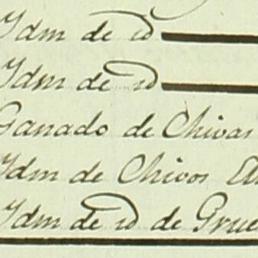 Idm de id
Idm de id
Ganado de Chivas
Idm de Chivos
Idm de id de Grue